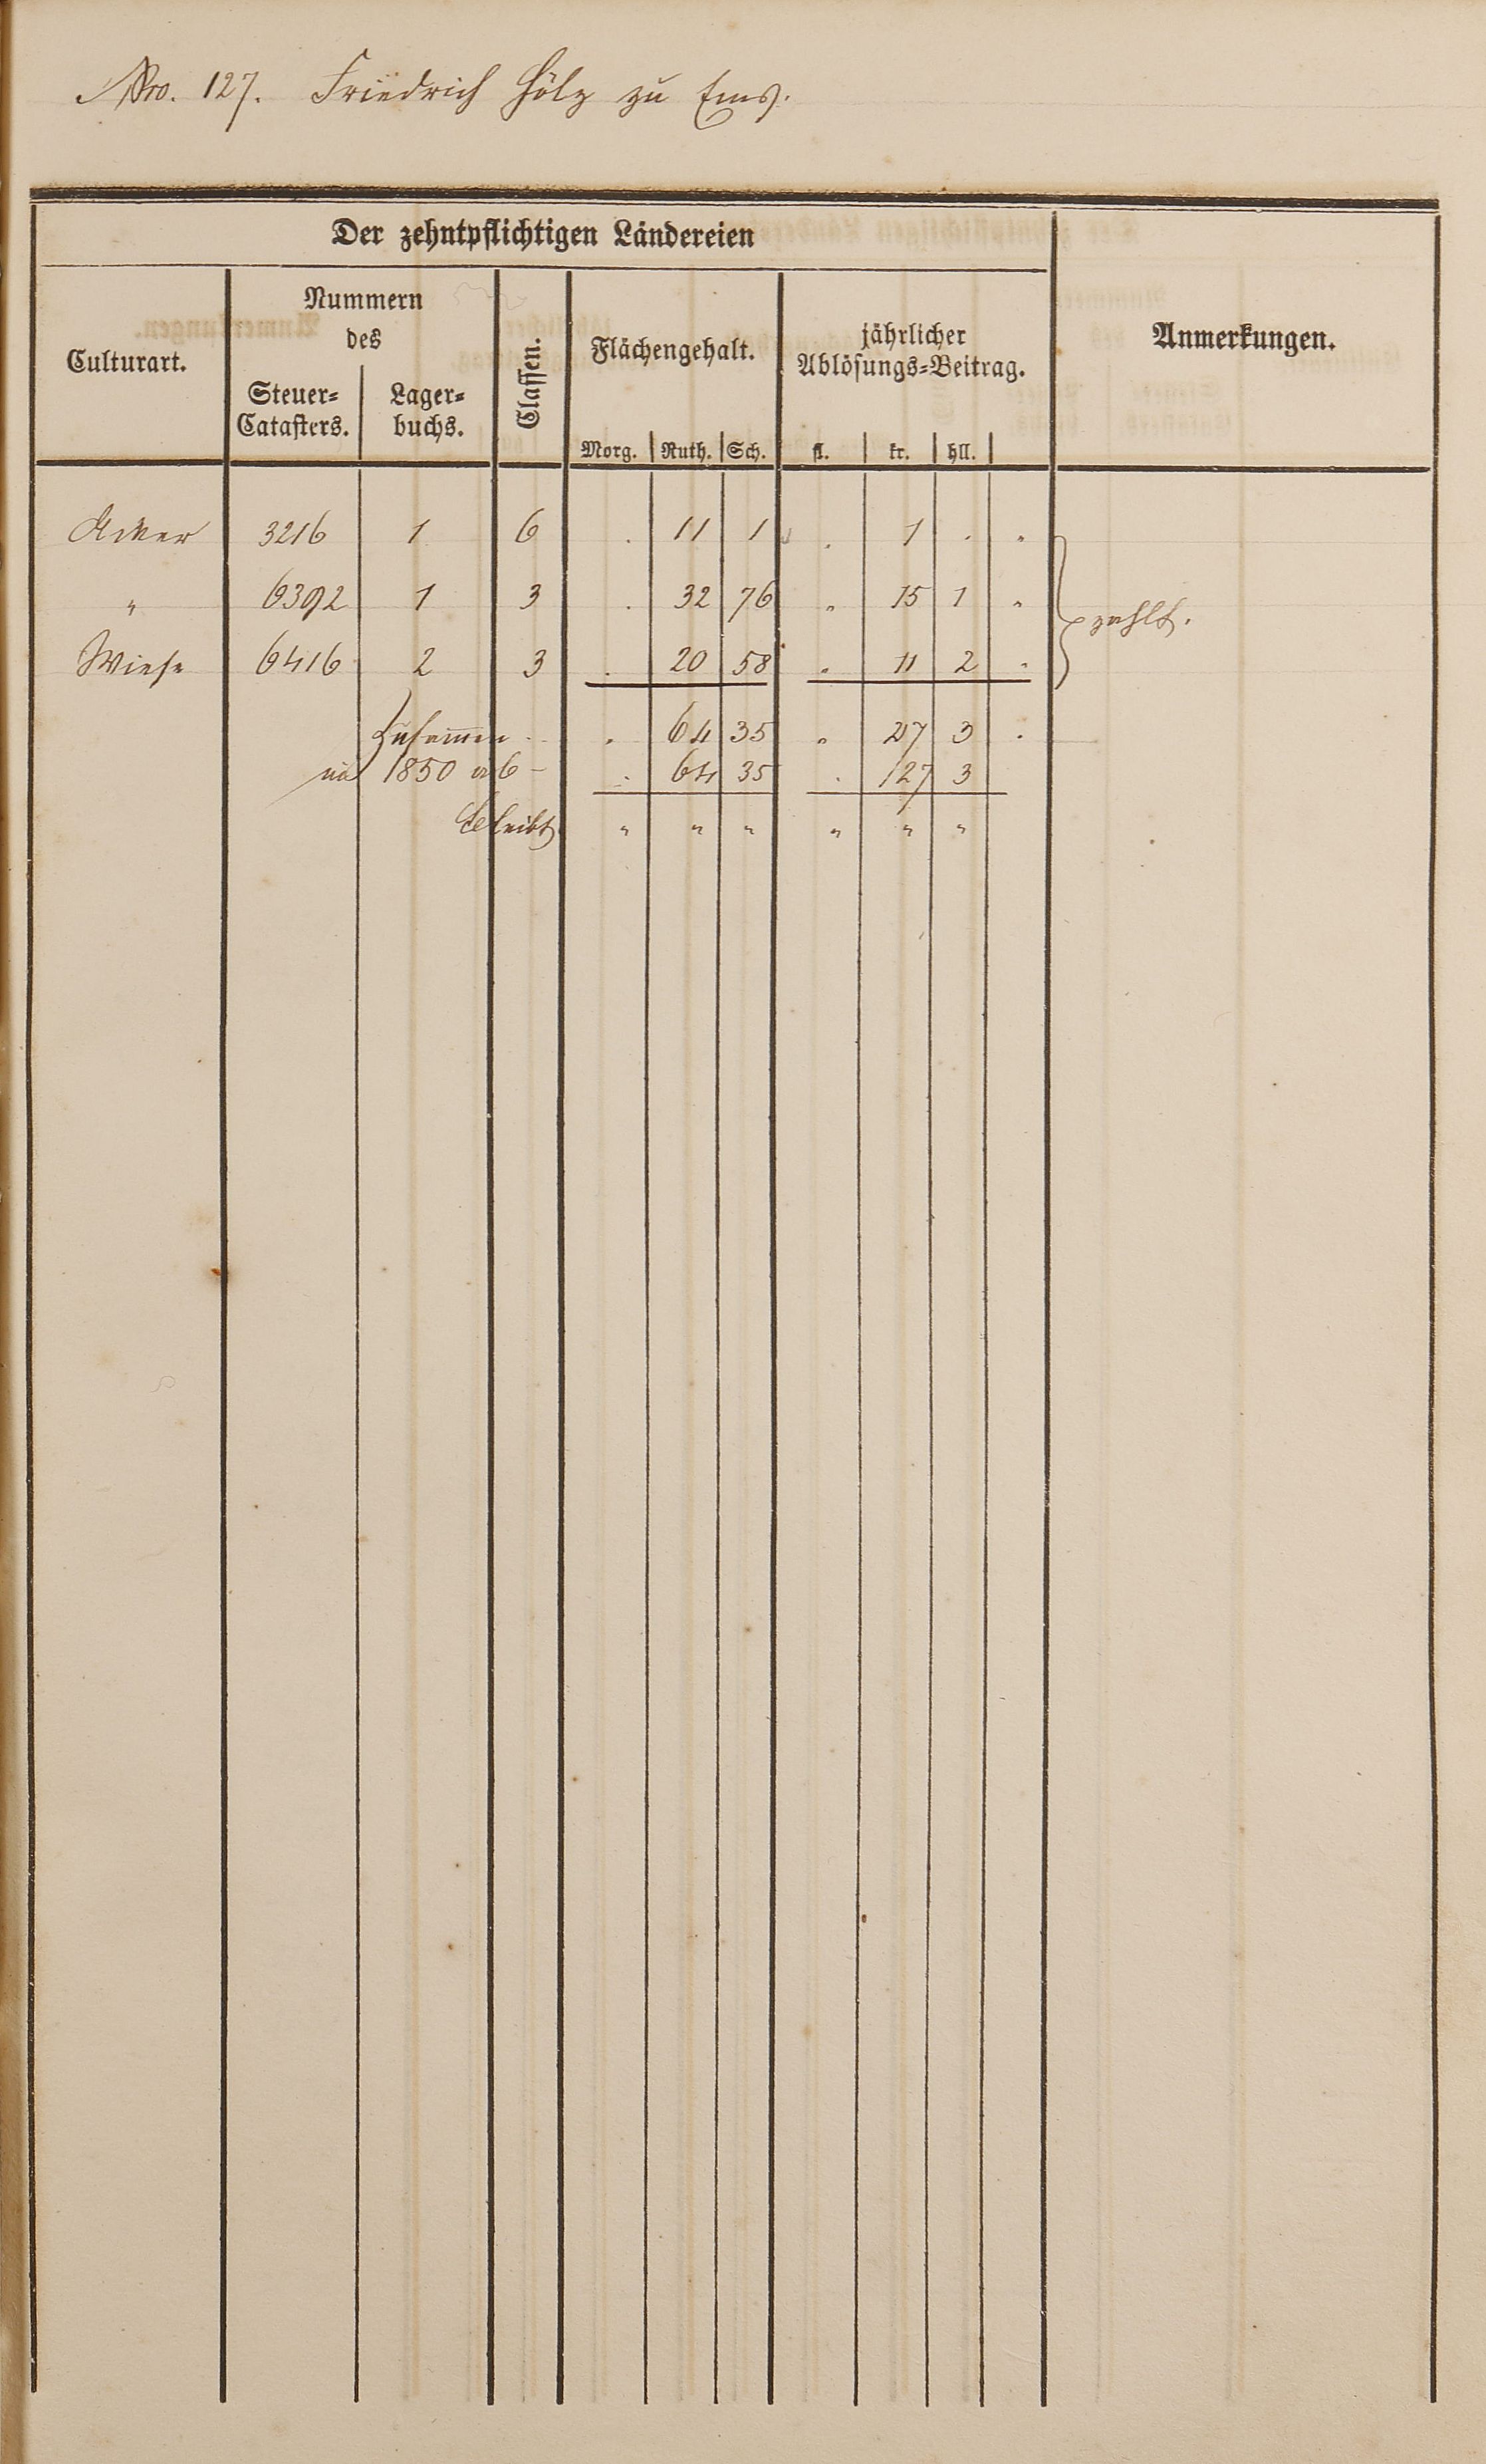 Nro. 127. Friedrich Hölz zu Ems.
Der zehntpflichtigen Ländereien
Culturart.
Nummern
des
Steuer-
Catasters.
Lager-
buchs.
Classen.
Flächengehalt.
Morg. Ruth. Sch.
jährlicher
Ablösungs-Beitrag.
fl. kr. hll.
Anmerkungen.
Acker 3216 1 6 . 11 1 . 1 . .
" 6392 1 3 . 32 76 . 15 1 .
zahlt.
Wiese 6416 2 3 . 20 58 . 11 2 .
Zusammen . 64 35 . 27 3 .
1850 ab - . 64 35 . 27 3
bleibt " " " " " "